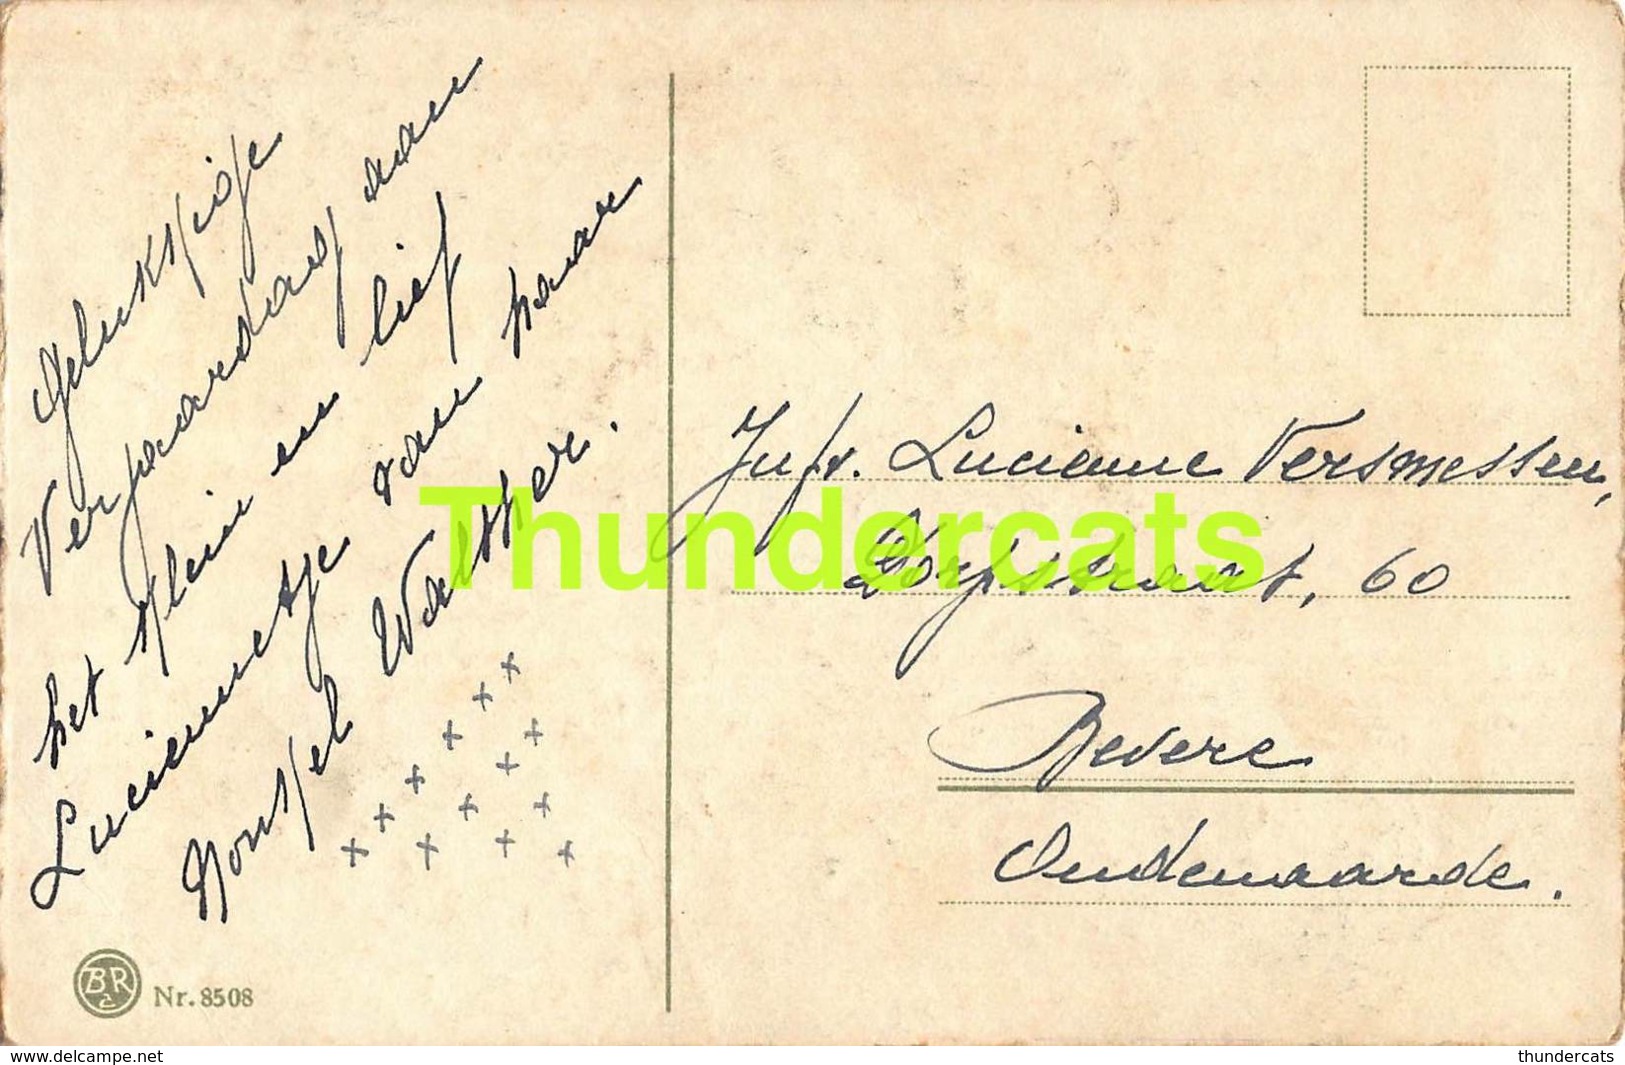 Gelukkige
Verjaardag aan
het klein en lief
Luciennetje van haar
Nonkel Walther.
Jufr. Lucienne Versmessen,
Dorpstraat, 60
Bevere
Oudenaarde.
Thundercats
BR
Nr. 8508
www.delcampe.net
thundercats